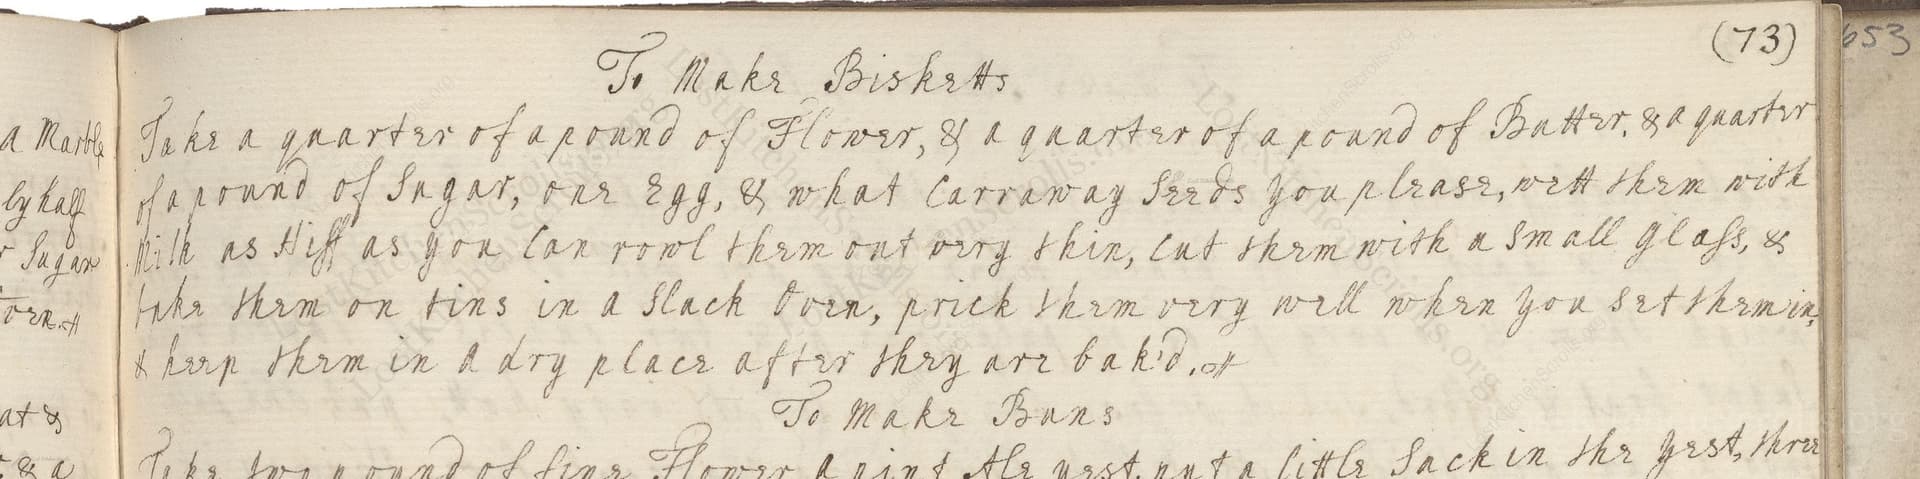 (73)
653
To Make Bisketts
Take a quarter of a pound of Flower, & a quarter of a pound of Butter, & a quarter
of a pound of Sugar, one Egg, & what Carraway Seeds you please, wett them with
Milk as stiff as you can rowl them out very thin, cut them with a small Glass, &
bake them on tins in a slack Oven, prick them very well when you set them in,
& keep them in a dry place after they are bak'd.
To Make Buns
Take two pound of fine Flower a pint Ale yest, put a little Sack in the Yest, three
a Marble
by half
r Sugar
oven.
at &
& a
LostKitchenScrolls.org